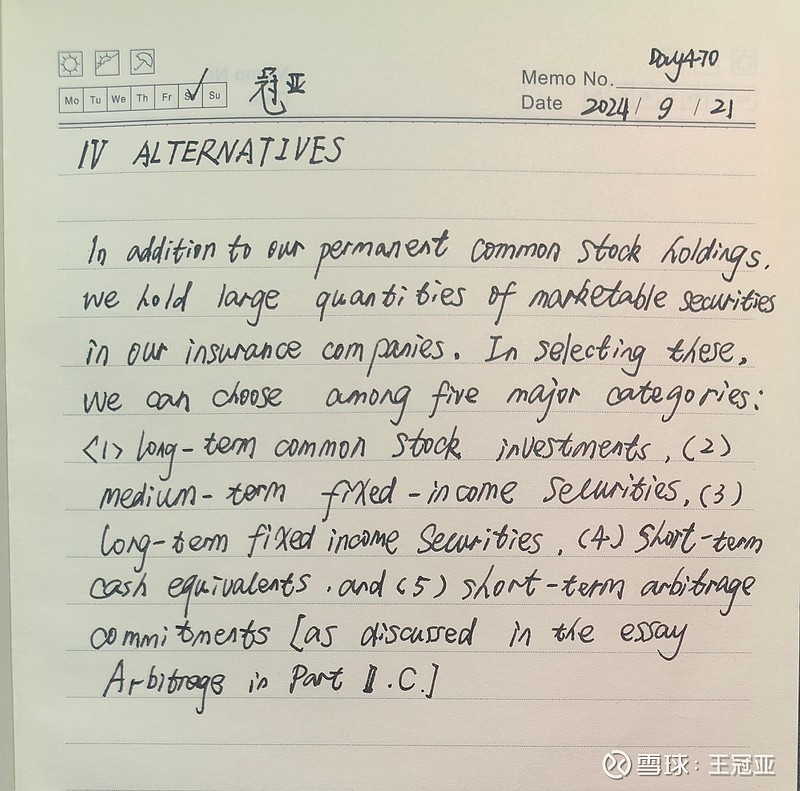 Day470
Memo No.
Mo Tu We Th Fr Su
冠亚
Date 2024/9/21
IV ALTERNATIVES
In addition to our permanent common stock holdings,
we hold large quantities of marketable securities
in our insurance companies. In selecting these,
we can choose among five major categories:
<1> long-term common stock investments, (2)
medium-term fixed-income securities, (3)
long-term fixed income securities, (4) short-term
cash equivalents, and (5) short-term arbitrage
commitments [as discussed in the essay
Arbitrage in Part II.C.]
雪球:王冠亚